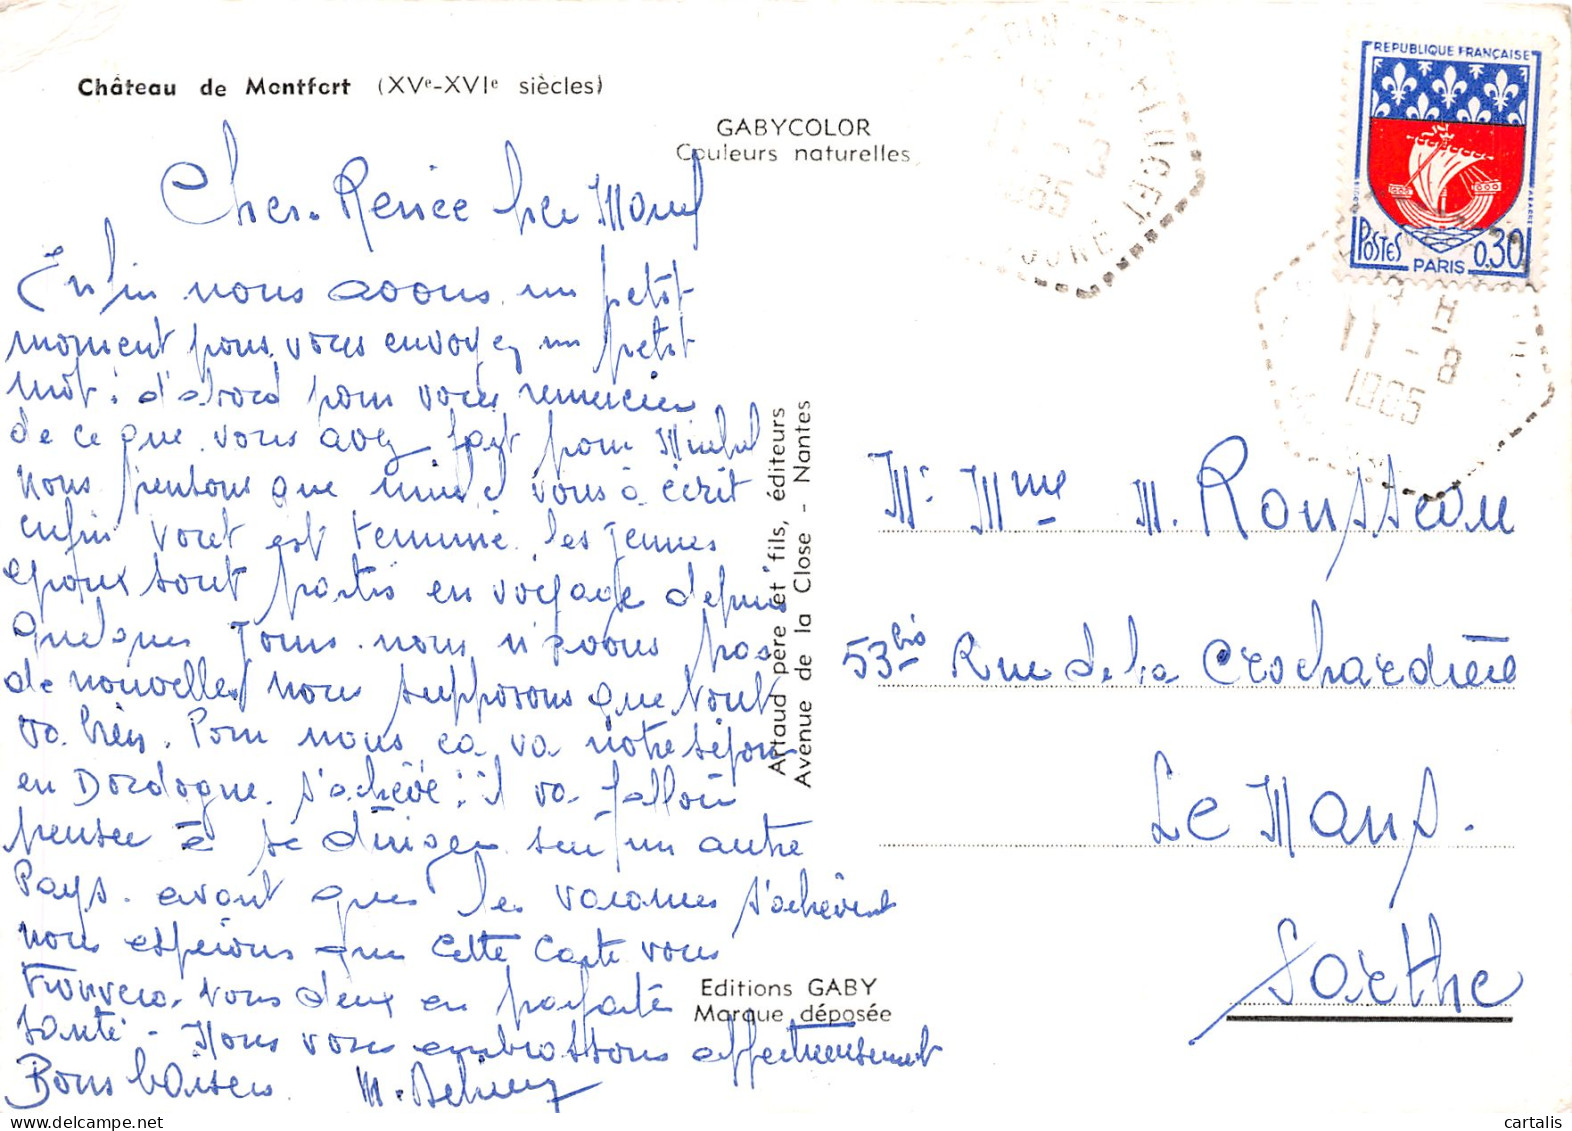 Château de Montfort (XVe-XVIe siècles)
GABYCOLOR
Couleurs naturelles
Cher Renée
Enfin nous avons un petit
moment pour vous envoyez un petit
mot : d'abord pour vous remercier
de ce que vous avez fait pour Michel
Nous pensons que vous à écrit
enfin tout est terminé. les jeunes
époux sont partis en voyage depuis
quelques jours. nous n'avons pas
de nouvelles nous supposons que tout
va bien. Pour nous ca va notre séjour
en Dordogne s'achève : il va falloir
penser à se diriger sur un autre
Pays. avant que les vacances s'achèvent
nous espérons que cette carte vous
trouvera vous deux en parfaite
santé - Nous vous embrassons affectueusement
Bons baisers. M.
Artaud père et fils, éditeurs
Avenue de la Close - Nantes
Editions GABY
Marque déposée
REPUBLIQUE FRANÇAISE
POSTES
PARIS
0,30
11 - 8
1965
Mr Mme M. Rousseau
53 bis Rue de la Crochardière
Le Mans.
Sarthe
cartalis